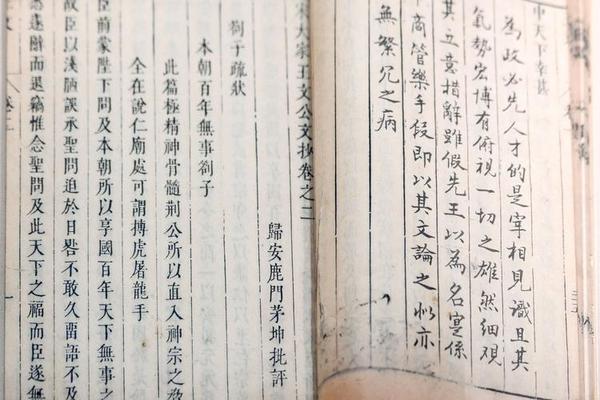 中天下幸甚
為政必先人才的是宰相見識且其
氣勢宏博有俯視一切之雄然細覌
其立意措辭雖假先王以為名寔係
商管樂手段即以其文論之似亦
無繁冗之病
宋大家王文公文抄卷之二
歸安鹿門茅坤批評
劄子疏狀
本朝百年無事劄子
此篇極精神骨髓荊公所以直入神宗之
全在說仁廟處可謂搏虎屠龍手
臣前蒙陛下問及本朝所以享國百年天下無事之
故臣以淺陋誤承聖問迫於日晷不敢久畱語不及
悉遂辭而退竊惟念聖問及此天下之福而臣遂無